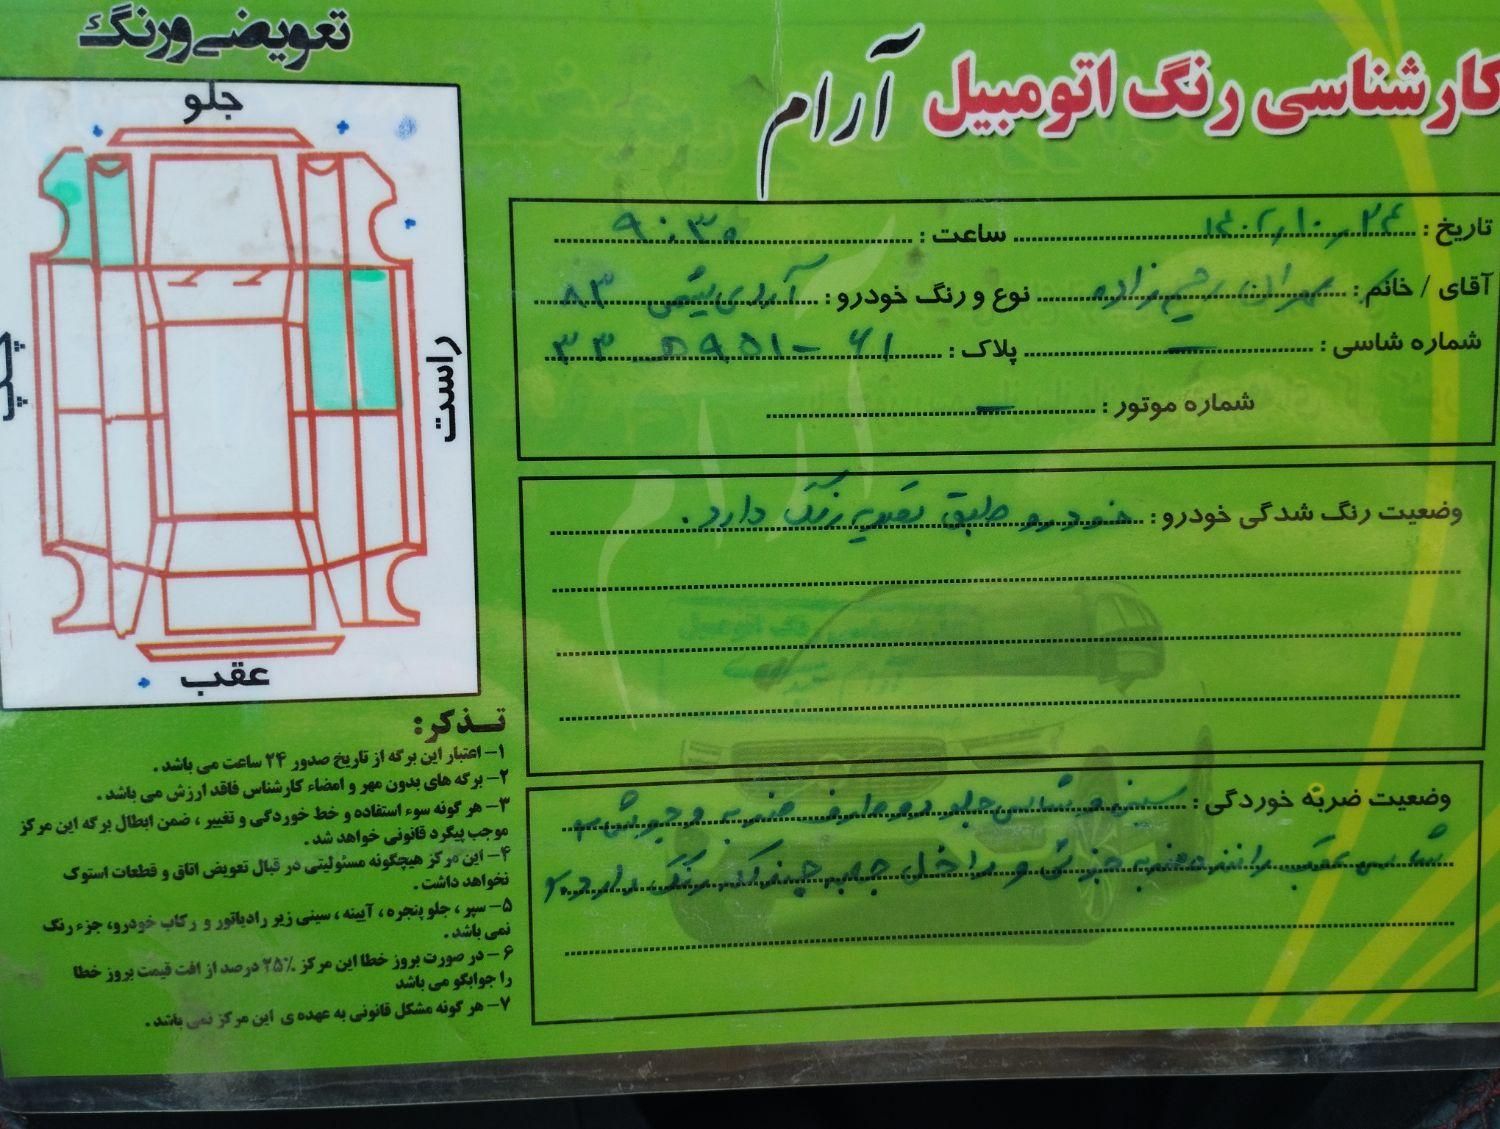 کارشناسی رنگ اتومبیل آرام
تعویضی و رنگ
جلو
چپ
راست
عقب
تاریخ : ۱۴۰۲٫۱۰٫۲۴ ساعت : ۹:۳۰
آقای / خانم : مهران رحیم زاده نوع و رنگ خودرو : آردی یشمی ۸۳
شماره شاسی : — پلاک : ۶۱ - ۹۵۱ ه ۳۳
شماره موتور : —
وضعیت رنگ شدگی خودرو : خودرو طبق تصویر رنگ دارد .
وضعیت ضربه خوردگی : سینی و شاسی جلو دو طرف ضربه و جوش
شاسی عقب راننده ضربه جزئی و داخل جعبه صندوق رنگ دارد
تـذکر:
۱- اعتبار این برگه از تاریخ صدور ۲۴ ساعت می باشد .
۲- برگه های بدون مهر و امضاء کارشناس فاقد ارزش می باشد .
۳- هر گونه سوء استفاده و خط خوردگی و تغییر ، ضمن ابطال برگه این مرکز
موجب پیگرد قانونی خواهد شد .
۴- این مرکز هیچگونه مسئولیتی در قبال تعویض اتاق و قطعات استوک
نخواهد داشت .
۵- سپر ، جلو پنجره ، آیینه ، سینی زیر رادیاتور و رکاب خودرو، جزء رنگ
نمی باشد .
۶- در صورت بروز خطا این مرکز ۲۵٪ درصد از افت قیمت بروز خطا
را جوابگو می باشد
۷- هر گونه مشکل قانونی به عهده ی این مرکز نمی باشد .